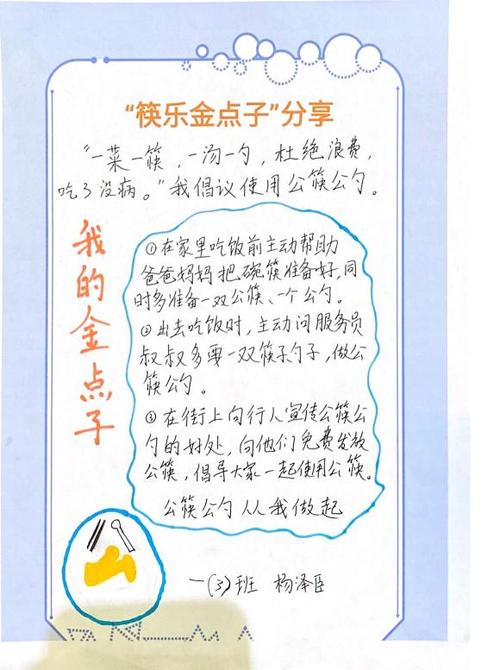 “筷乐金点子”分享
“一菜一筷，一汤一勺，杜绝浪费，
吃了没病。”我倡议使用公筷公勺。
我的金点子
①在家里吃饭前主动帮助
爸爸妈妈把碗筷准备好，同
时多准备一双公筷、一个公勺。
②出去吃饭时，主动问服务员
叔叔多要一双筷子勺子，做公
筷公勺。
③在街上向行人宣传公筷公
勺的好处，向他们免费发放
公筷，倡导大家一起使用公筷。
公筷公勺从我做起
一(3)班 杨泽臣